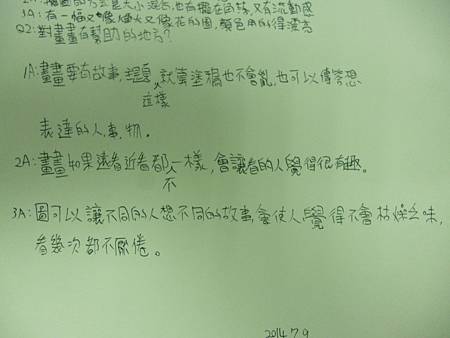 3A:有一幅又像煙火又像花的圖,顏色用的得漂亮
Q2:對畫畫有幫助的地方?
1A:畫畫要有故事,主題,這樣就算塗鴉也不會亂,也可以傳答想
表達的人、事、物。
2A:畫畫如果遠看近看都不一樣,會讓看的人覺得很有趣。
3A:圖可以讓不同的人想不同的故事,會使人覺得不會枯燥乏味,
看幾次都不厭倦。
2014.7.9